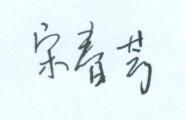 宋春芳